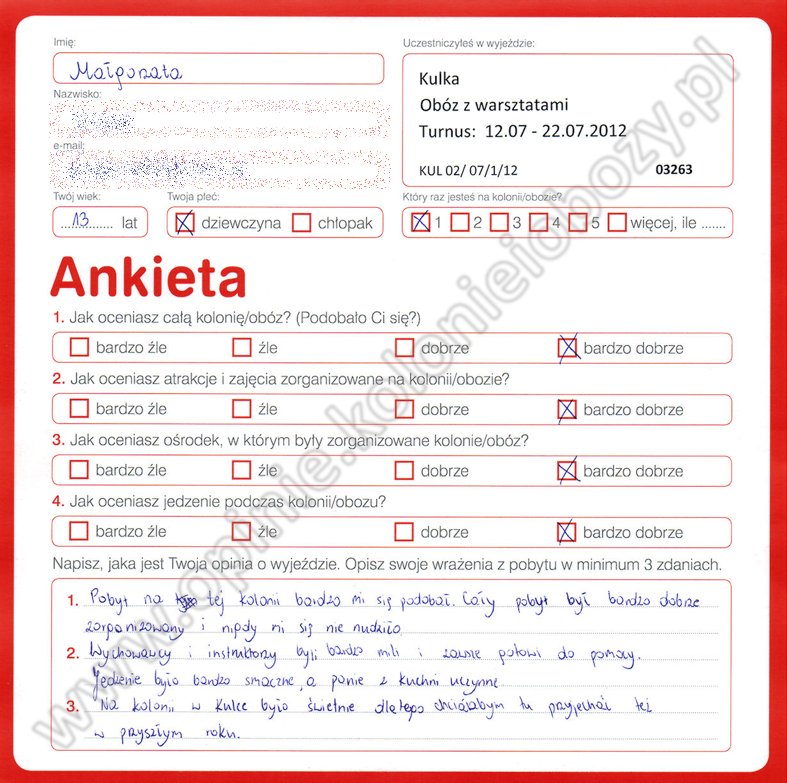 Imię:
Małgorzata
Nazwisko:
e-mail:
Uczestniczyłeś w wyjeździe:
Kulka
Obóz z warsztatami
Turnus: 12.07 - 22.07.2012
KUL 02/ 07/1/12 03263
Twój wiek: Twoja płeć: Który raz jesteś na kolonii/obozie?
...13....... lat dziewczyna chłopak 1 2 3 4 5 więcej, ile .......
Ankieta
1. Jak oceniasz całą kolonię/obóz? (Podobało Ci się?)
bardzo źle źle dobrze bardzo dobrze
2. Jak oceniasz atrakcje i zajęcia zorganizowane na kolonii/obozie?
bardzo źle źle dobrze bardzo dobrze
3. Jak oceniasz ośrodek, w którym były zorganizowane kolonie/obóz?
bardzo źle źle dobrze bardzo dobrze
4. Jak oceniasz jedzenie podczas kolonii/obozu?
bardzo źle źle dobrze bardzo dobrze
Napisz, jaka jest Twoja opinia o wyjeździe. Opisz swoje wrażenia z pobytu w minimum 3 zdaniach.
1. Pobyt na tej kolonii bardzo mi się podobał. Cały pobyt był bardzo dobrze
zorganizowany i nigdy mi się nie nudziło.
2. Wychowawcy i instruktorzy byli bardzo mili i zawsze gotowi do pomocy.
Jedzenie było bardzo smaczne, a panie z kuchni uczynne.
3. Na kolonii w Kulce było świetnie dlatego chciałabym tu przyjechać też
w przyszłym roku.
www.opinie.kolonieiobozy.pl